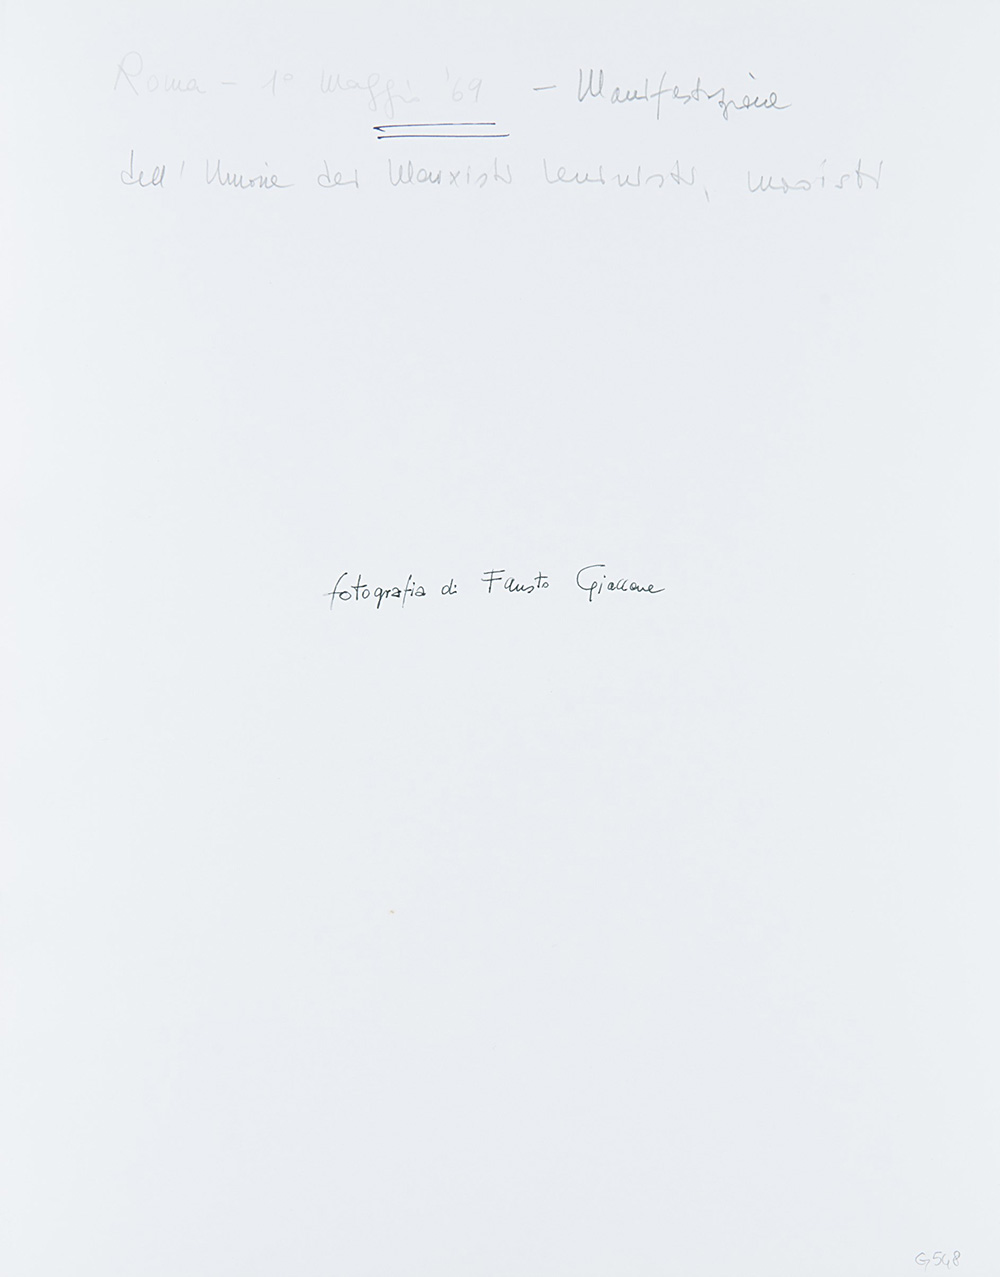 Roma - 1° Maggio '69 - Manifestazione
dell'Unione dei Marxisti Leninisti, maoisti
fotografia di Fausto Giaccone
G548